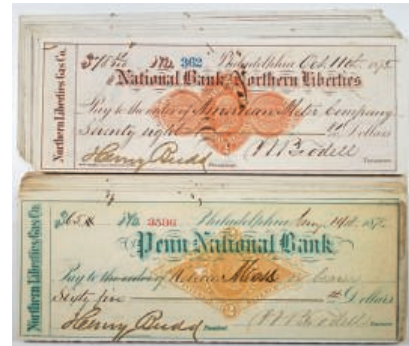 Northern Liberties Gas Co.
No. 362 Philadelphia Oct. 11th 187
National Bank Northern Liberties
Pay to the order of American Meter Company
Seventy eight Dollars
Henry Budd President W Brodell Treasurer
Northern Liberties Gas Co.
$65 No. 3596 Philadelphia 187
Penn National Bank
Pay to the order of Moss or bearer
Sixty five Dollars
Henry Budd President Treasurer